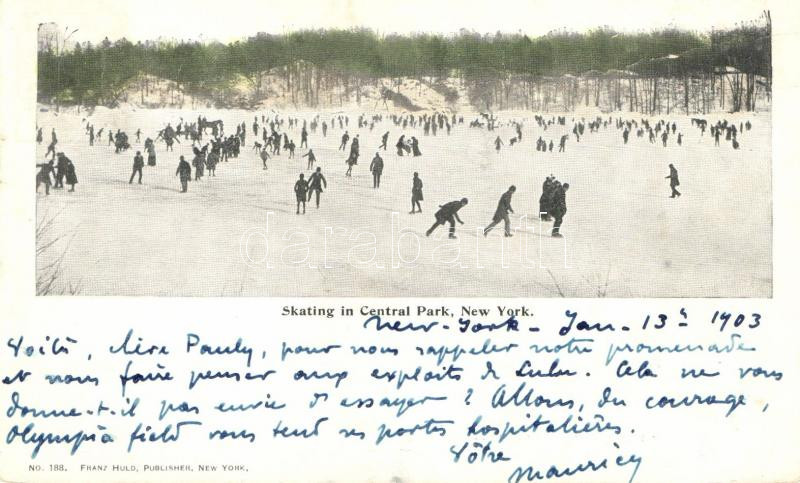 Skating in Central Park, New York.
New-York - Jan. 13th 1903
Voilà, Pauly, pour nous rappeler notre promenade
et nous faire penser aux exploits de Lulu. Cela ne vous
donne-t-il pas envie d'essayer ? Allons, du courage,
Olympia field vous tend ses portes hospitalières.
Vôtre
No. 188. Franz Huld, Publisher, New York,
darabanth